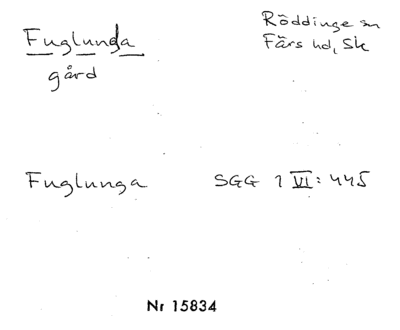 Fuglunda
Röddinge sn
Färs hd, Sk
gård
Fuglunga SGG 1 VI: 445
Nr 15834